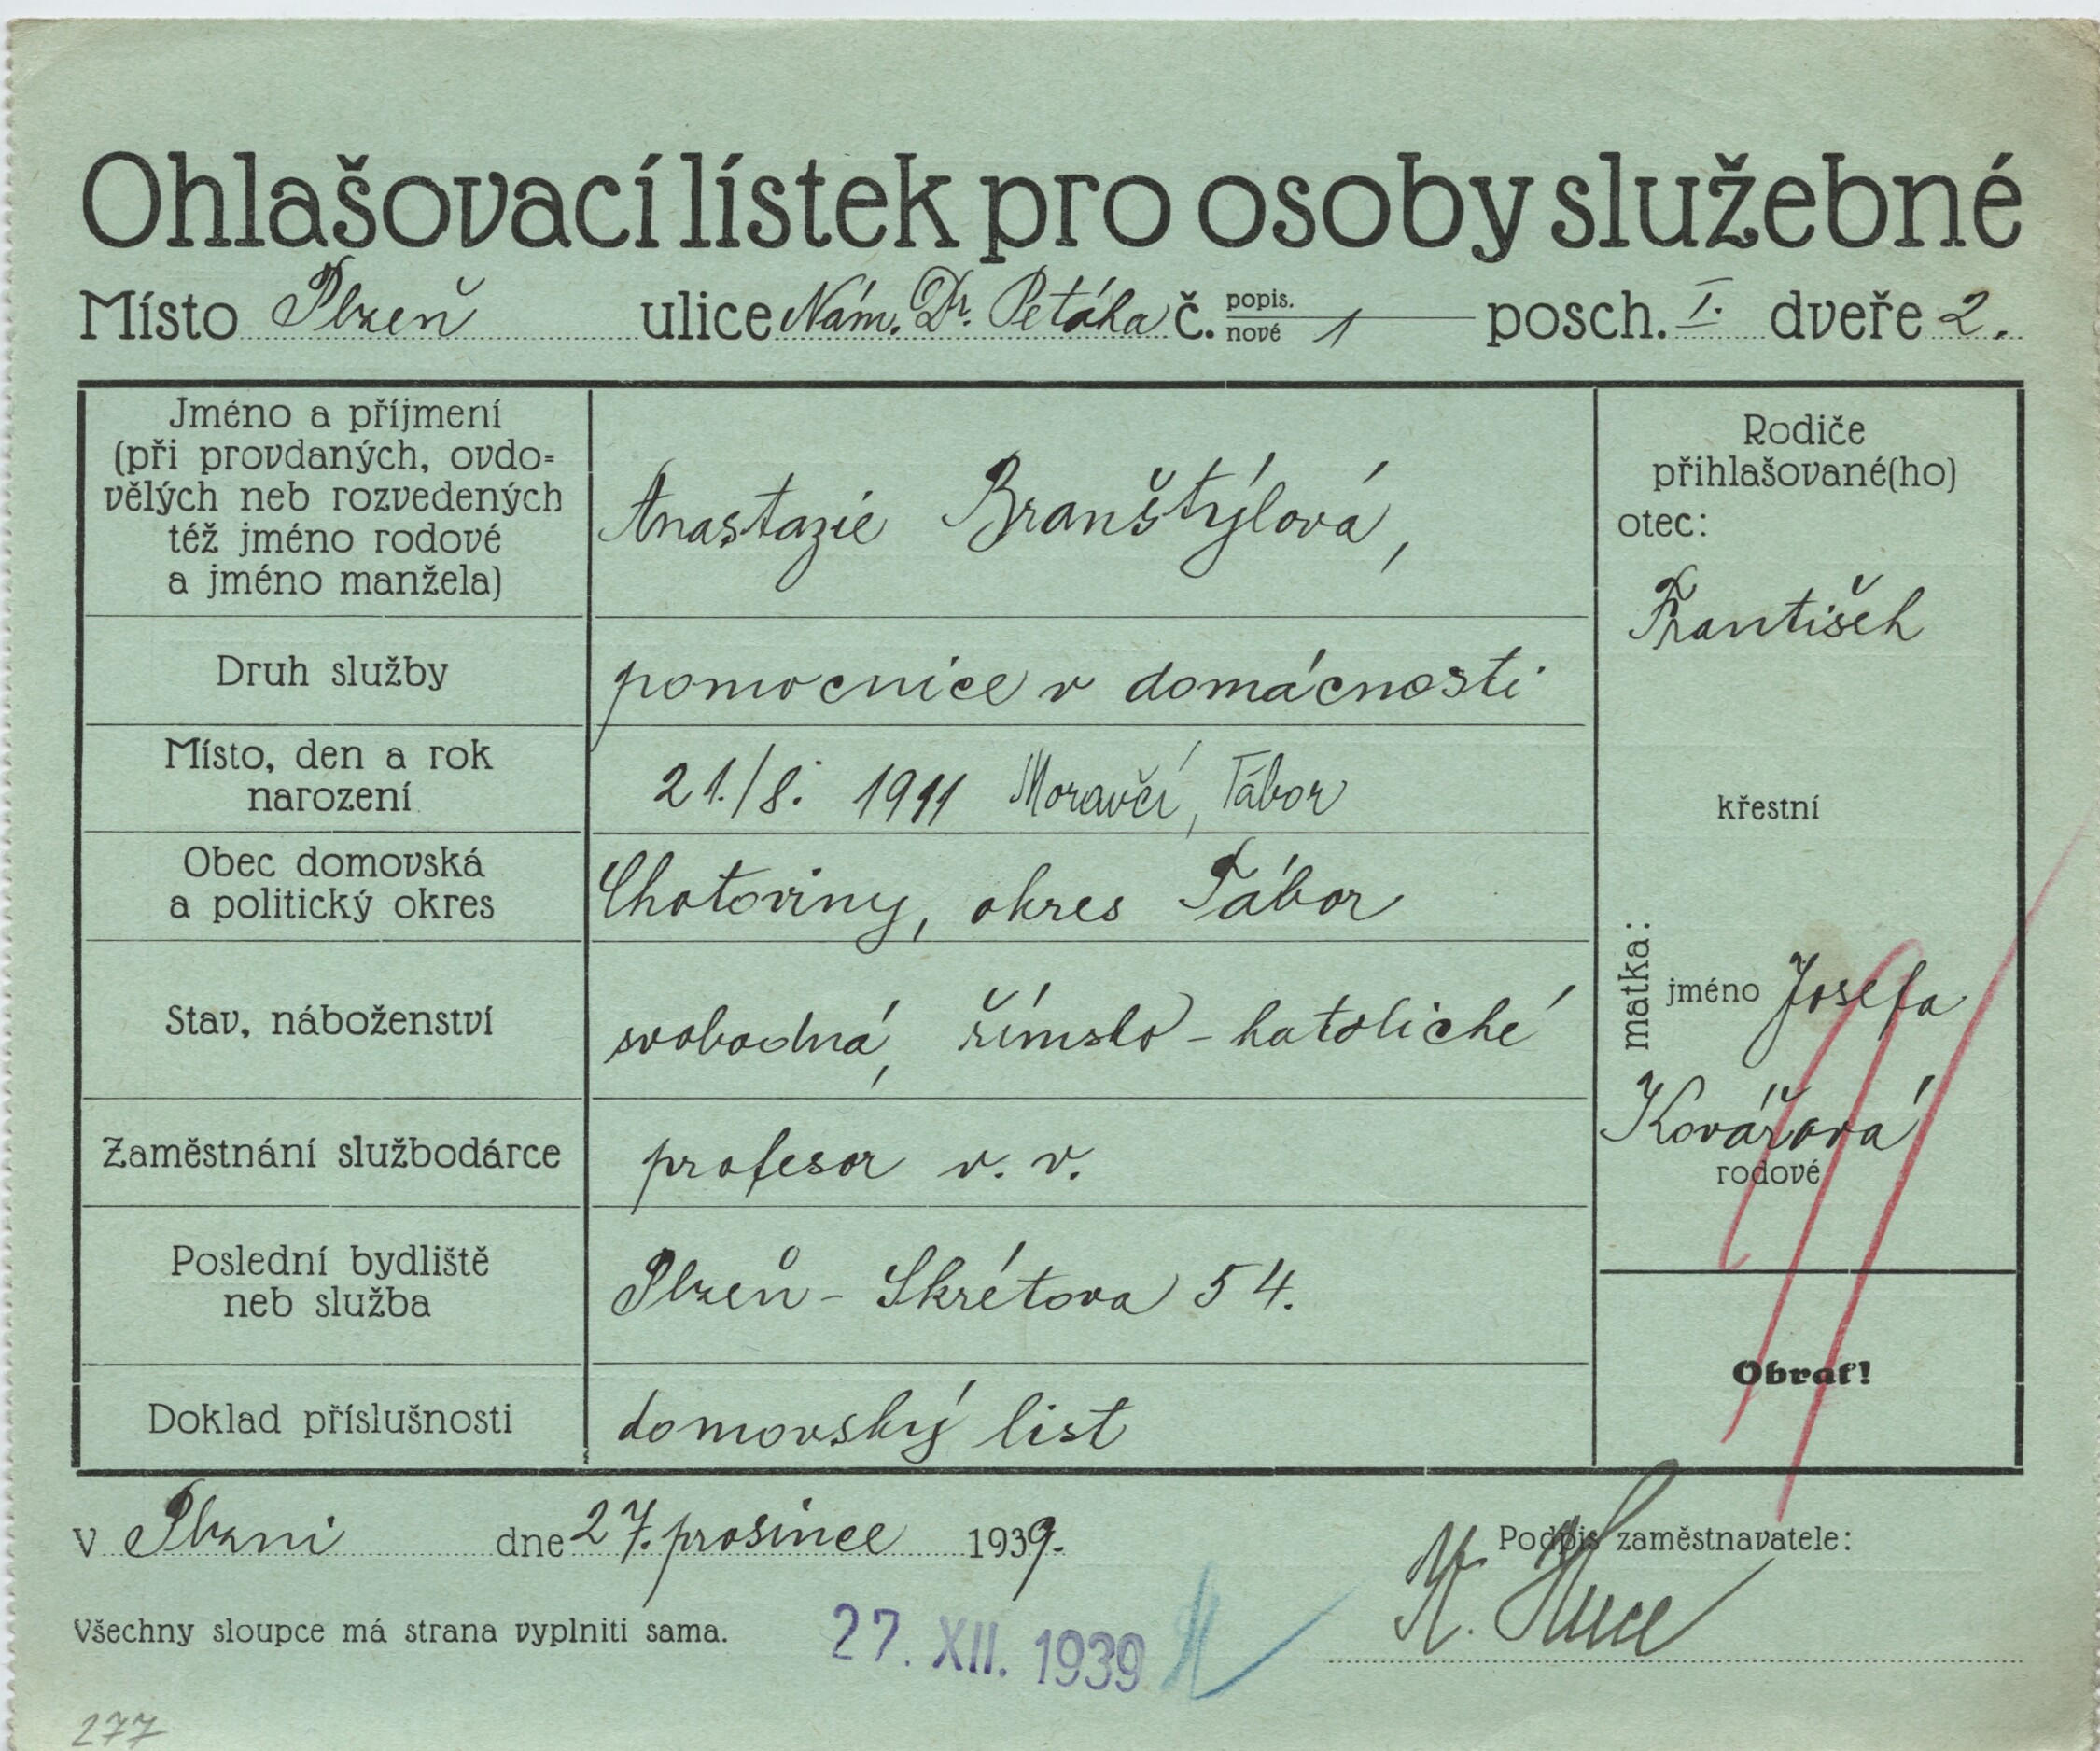 Ohlašovací lístek pro osoby služebné
Místo Plzeň ulice Nám. Dr. Petáka č. popis. nové 1 posch. I. dveře 2.
Jméno a příjmení
(při provdaných, ovdo=
vělých neb rozvedených
též jméno rodové
a jméno manžela)
Anastazie Branštýlová,
Druh služby
pomocnice v domácnosti
Místo, den a rok
narození
21./8. 1911 Moravčí, Tábor
Obec domovská
a politický okres
Chotoviny, okres Tábor
Stav, náboženství
svobodná, římsko-katolické
Zaměstnání službodárce
profesor v. v.
Poslední bydliště
neb služba
Plzeň - Skrétova 54.
Doklad příslušnosti
domovský list
Rodiče
přihlašované(ho)
otec:
František
křestní
matka:
jméno Josefa
Kovářová
rodové
Obrať!
v Plzni dne 27. prosince 1939.
Podpis zaměstnavatele:
Všechny sloupce má strana vyplniti sama.
27. XII. 1939
277